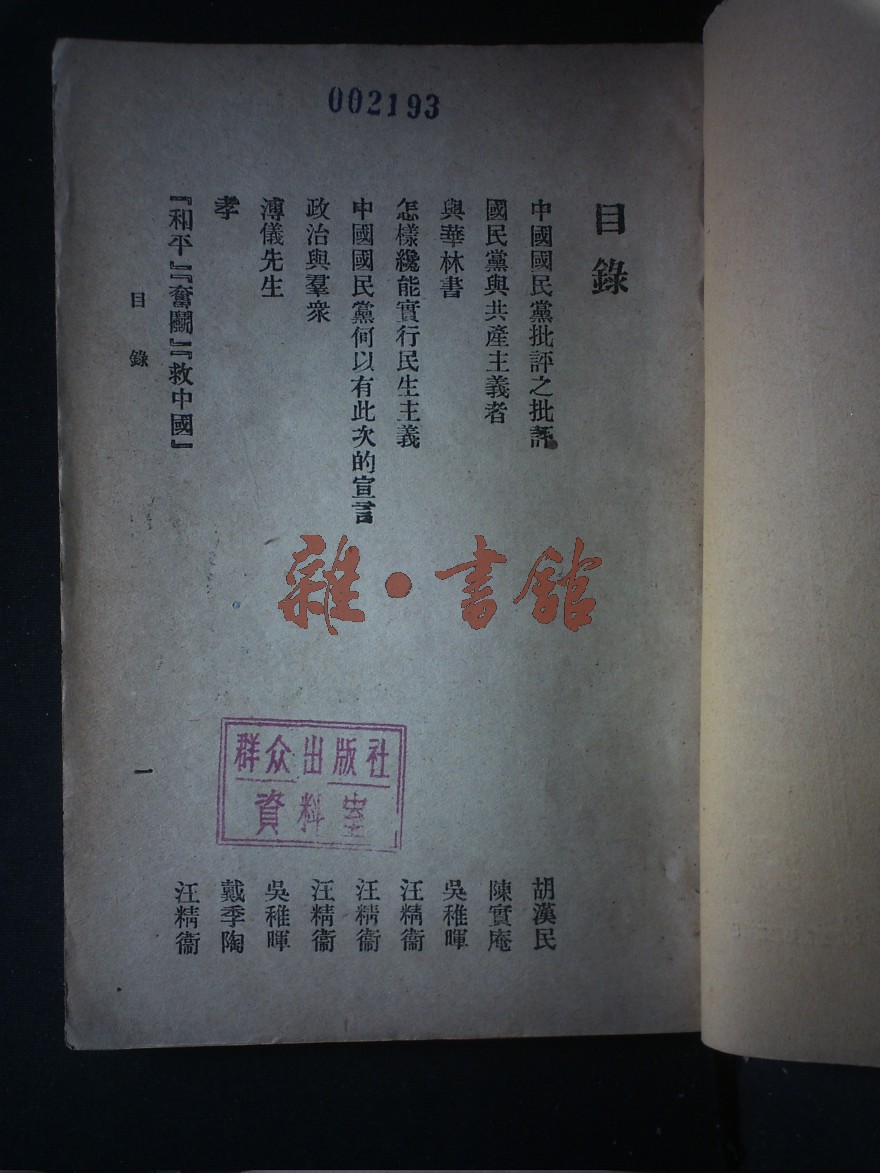 002193
目錄
中國國民黨批評之批評 胡漢民
國民黨與共產主義者 陳實庵
與華林書 吳稚暉
怎樣纔能實行民生主義 汪精衞
中國國民黨何以有此次的宣言 汪精衞
政治與羣衆 汪精衞
溥儀先生 吳稚暉
孝 戴季陶
『和平』『奮鬭』『救中國』 汪精衞
目錄 一
雜·書館
群众出版社
資料室